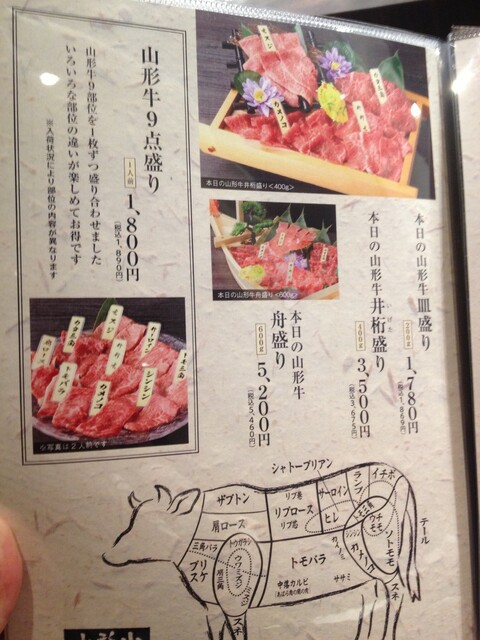 本日の山形牛皿盛り
200g 1,780円
(税込1,869円)
本日の山形牛井桁盛り
いげた
400g 3,500円
(税込3,675円)
本日の山形牛
舟盛り
600g 5,200円
(税込5,460円)
本日の山形牛井桁盛り<400g>
本日の山形牛舟盛り<600g>
山形牛9点盛り
1人前 1,800円
(税込1,890円)
山形牛9部位を1枚ずつ盛り合わせました
いろいろな部位の違いが楽しめてお得です
※入荷状況により部位の内容が異なります
カメノコ
ミスジ
カイノミ
シンシン
トモバラ
カメノコ
☆写真は2人前です
シャトーブリアン
ザブトン
リブ巻
リブロース
リブ芯
サーロイン
ランプ
イチボ
テール
肩ロース
ヒレ
トモ三角
ウチモモ
シンシン
カメノコ
ソトモモ
三角バラ
トウガラシ
ブリスケ
肩三角
ウワミスジ
ミスジ
トモバラ
カイノミ
中落カルビ
(あばら骨の間の肉)
ササミ
スネ
スネ
山形牛